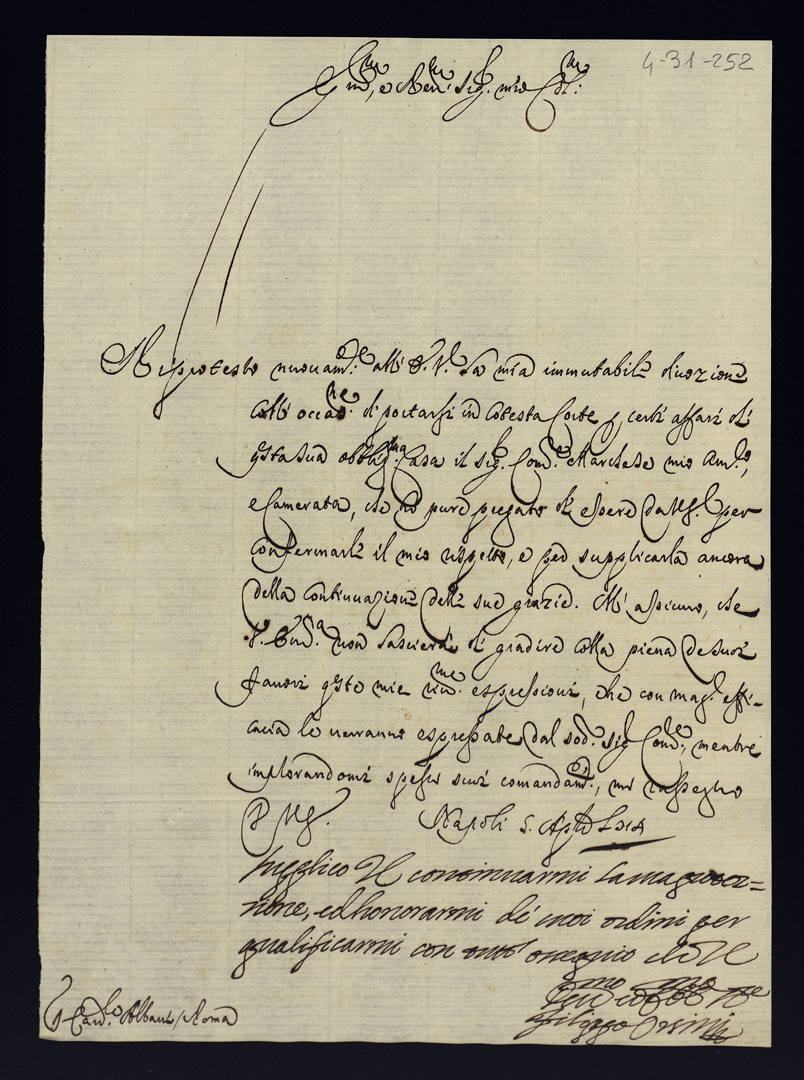 4-31-252
Em.mo, e Rev.mo Sig.r mio Col.mo:
Riprotesto nuovam.te all' E. V. la mia immutabile divozione
coll' occas.ne di portarsi in cotesta Corte p certi affari di
qsta sua obblig.ma Casa il Sig.r Com.re Marchese mio Am.co,
e Camerata, che hò pure pregato di essere da Vs. per
confermarle il mio rispetto, e per supplicarla ancora
della continuazione delle sue grazie. M'assicuro, che
V. Em.za non lascierà di gradire colla piena de suoi
favori qste mie rive.me espressioni, che con mag.r effi-
cacia le verranno espressate dal sod.o Sig.r Com.re, mentre
implorandomi spessi suoi comandam.ti, mi rassegno
D Vs. Napoli 5. Aple
supplico VE continuarmi la sua
ed honorarmi de suoi ordini per
qualificarmi con tutt' ossequio di VE
Filippo Orsini
S Card.le Albani / Roma